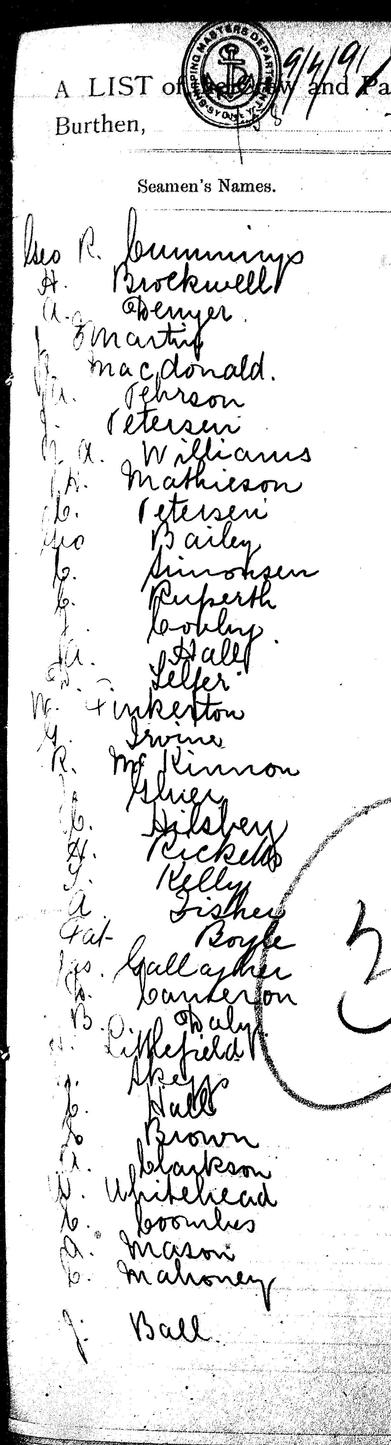 SHIPPING MASTERS DEPARTMENT SYDNEY
9/4/91
A LIST of the Crew and Pa
Burthen,
Seamen's Names.
Geo R. Cummings
H. Brockwell
A. Denyer
Martin
Macdonald.
Pehrson
J. Petersen
A. Williams
H. Mathieson
C. Petersen
Geo Bailey
C. Simonsen
C. Ruperth
J.
A. Hall
Telfer
W. Pinkerton
G. Irvine
R. McKinnon
Hilsbery
H. Ricketts
J. Kelly
A Fisher
Pat Boyle
Jas. Gallagher
Cameron
B. Daly
Littlefield
Skegg
Hall
Brown
A. Clarkson
Whitehead
Coombes
Mason
Mahoney
J. Ball.
3